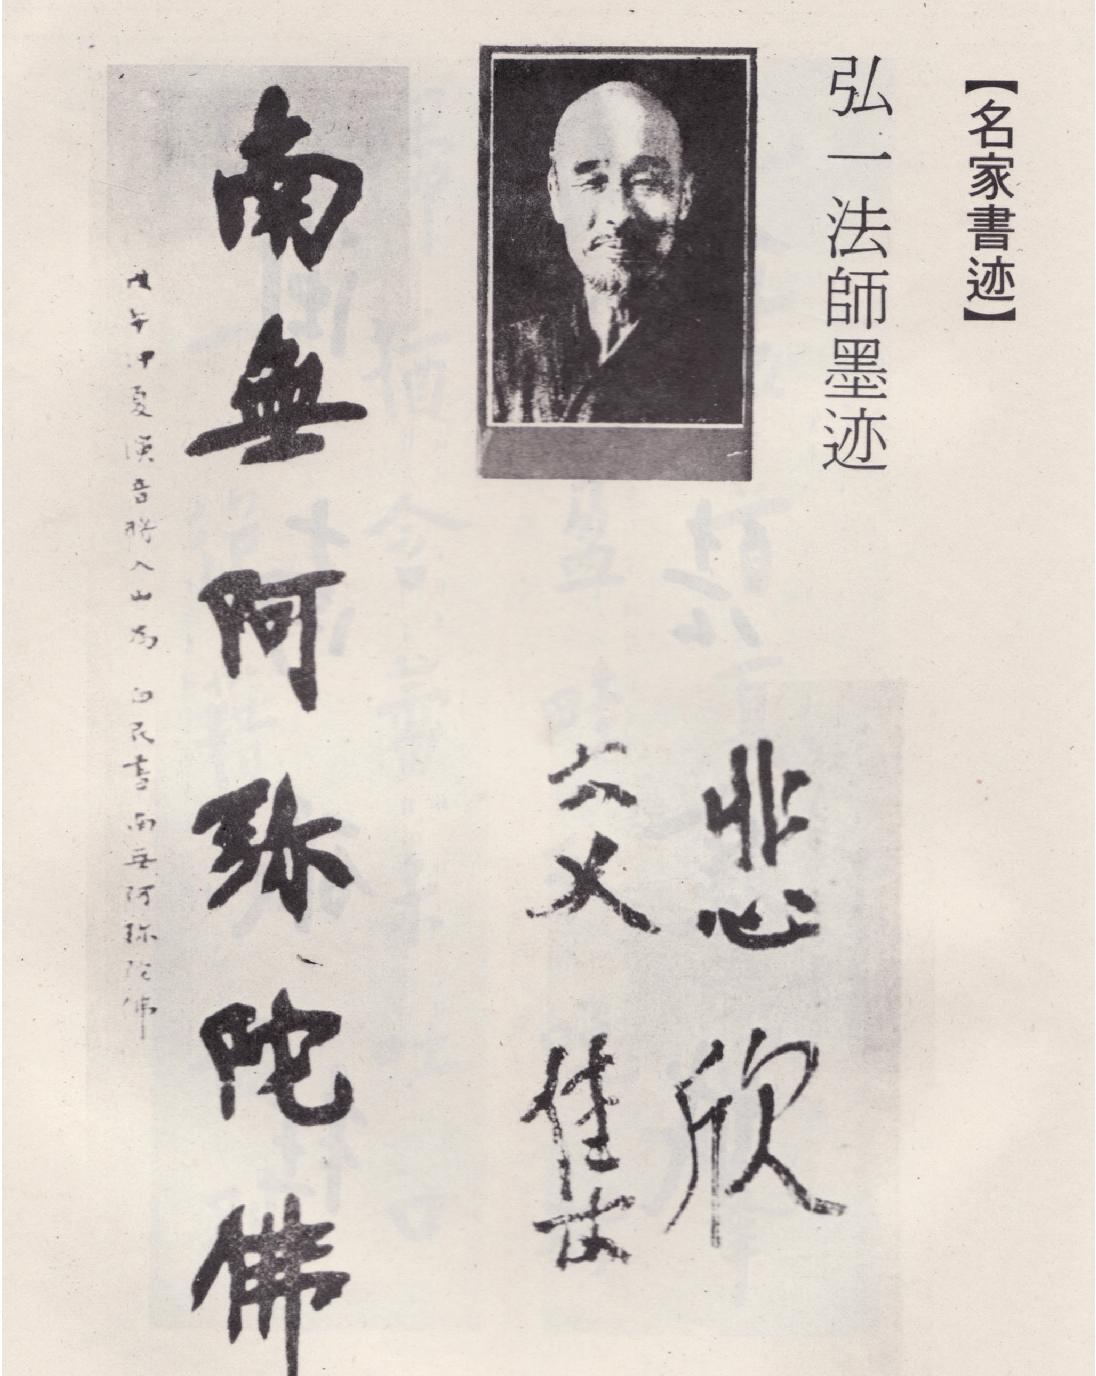 【名家書迹】
弘一法師墨迹
悲欣
交集
南無阿弥陀佛
戊午仲夏演音將入山為 白民書南无阿弥陀佛